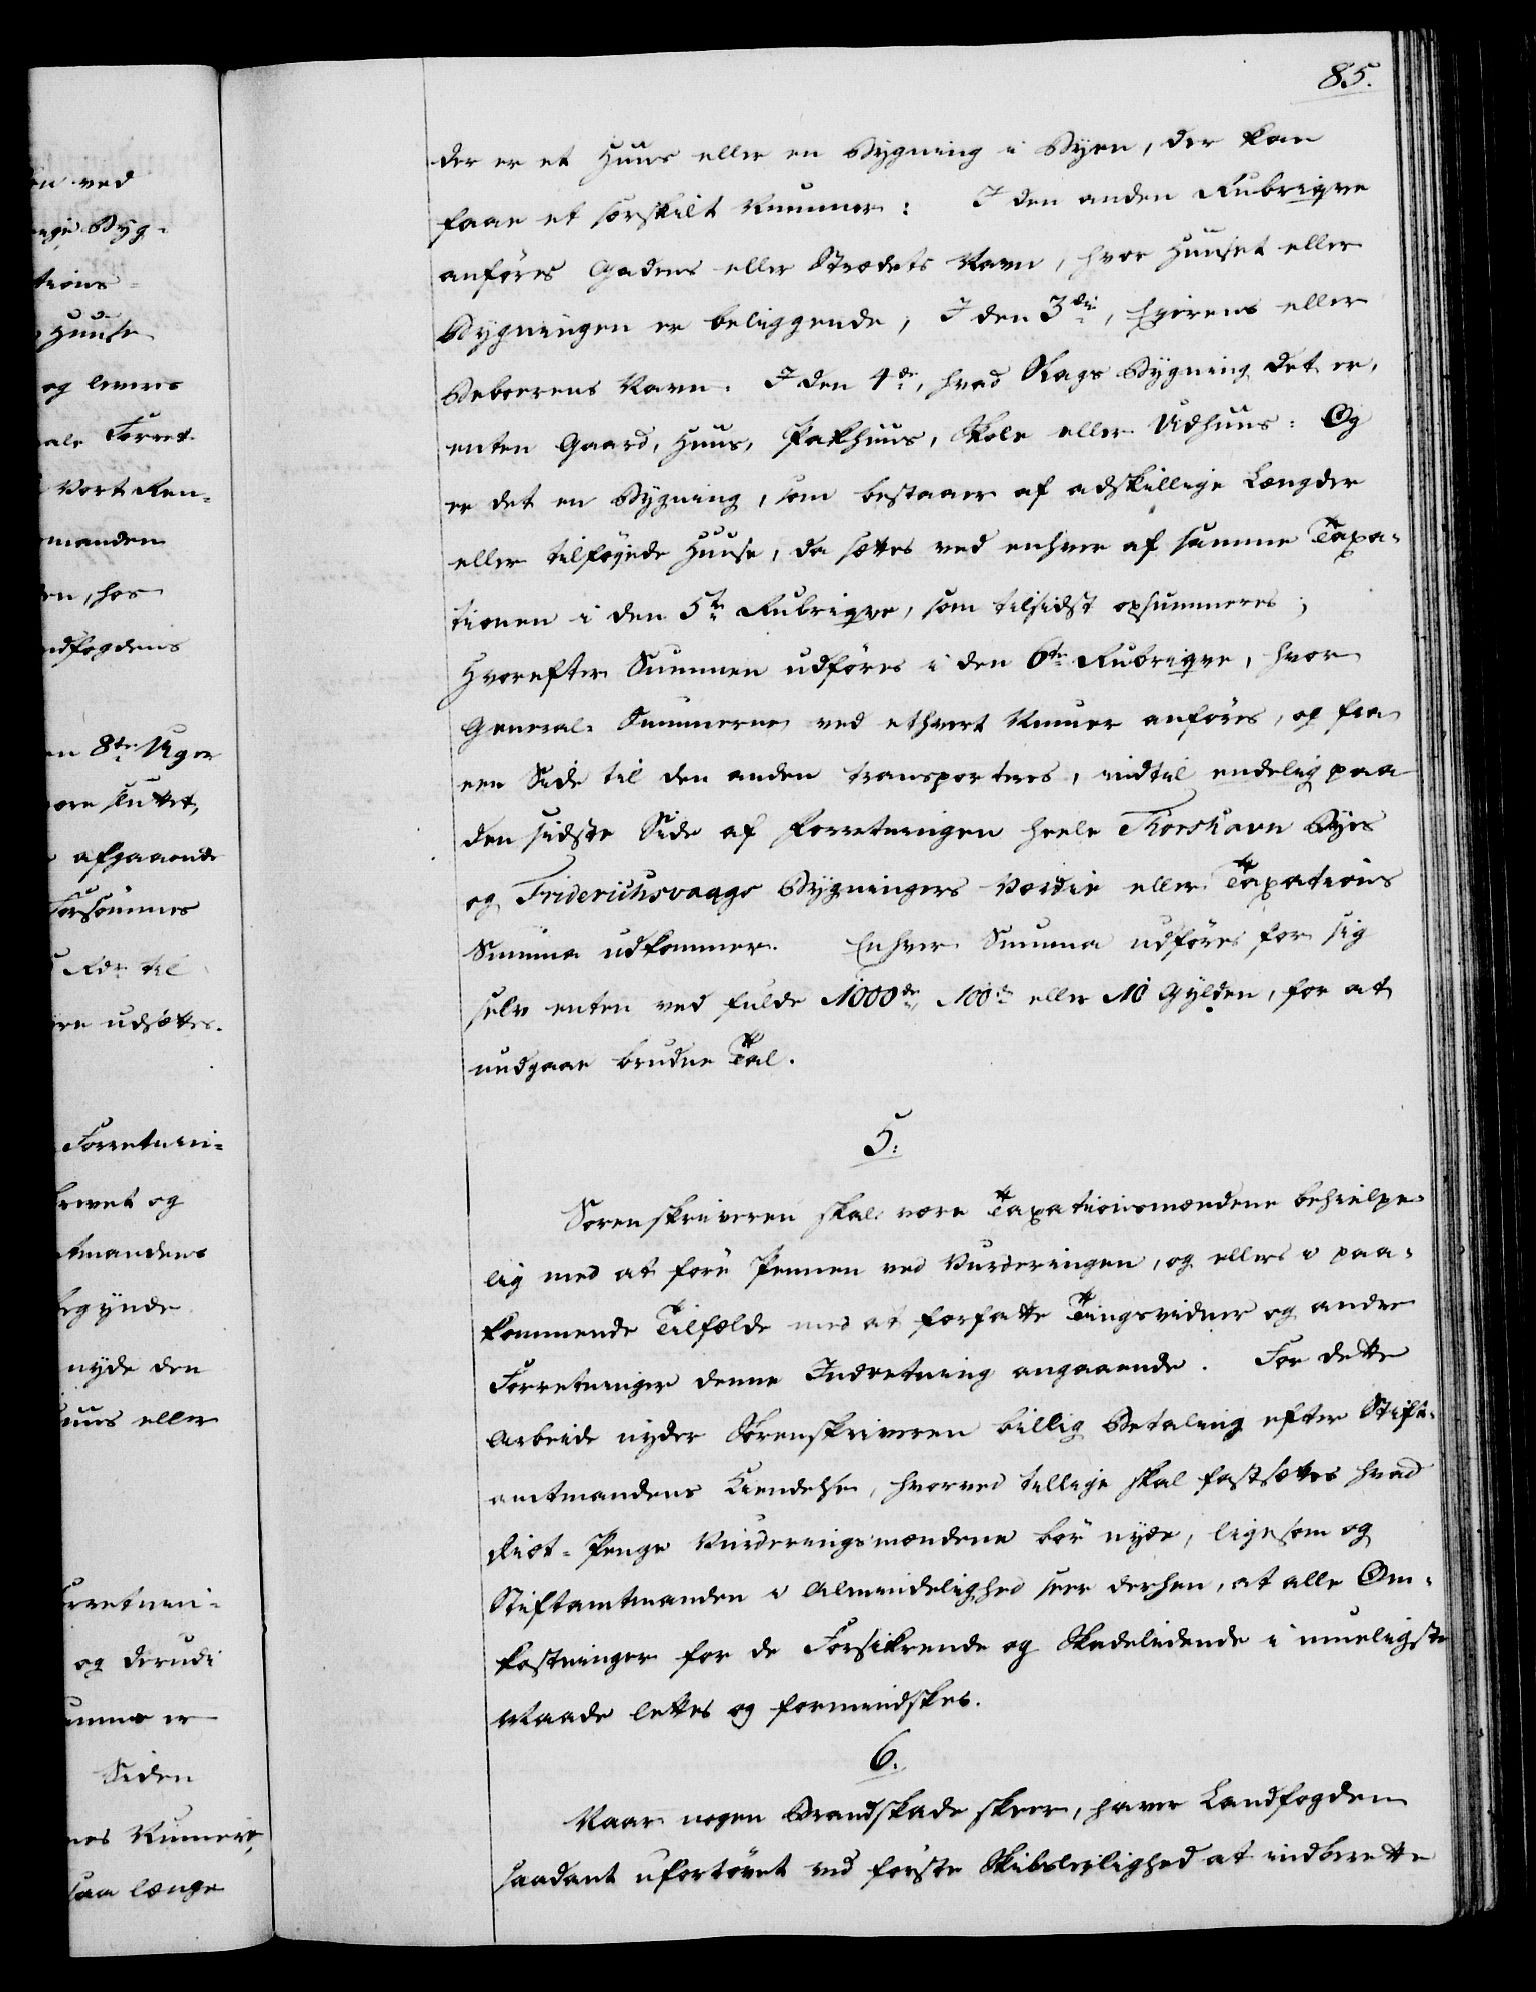 85.
der er et Huus eller en Bygning i Byen, der kan
faae et særskilt Nummer: I den anden Rubriqve
anföres Gadens eller Strædets Navn, hvor Huuset eller
Bygningen er beliggende, I den 3die, Eyerens eller
Beboerens Navn. I den 4de, hvad Slags Bygning det er,
enten Gaard, Huus, Pakhuus, Skole eller Udhuus: Og
er det en Bygning, som bestaaer af adskillige Længder
eller tilföyede Huuse, da sættes ved enhver af samme Taxa-
tionen i den 5te Rubriqve, som tilsidst opsummeres;
Hvorefter Summen udföres i den 6te Rubriqve, hvor
General-Summerne ved ethvert Numer anföres, og fra
een Side til den anden transporteres, indtil endelig paa
den sidste Side af Forretningen heele Thorshavn Byes
og Friderichsvaags Bygningers Værdie eller Taxations
Summa udkommer. Enhver Summa udföres for sig
selv enten ved fulde 1000de, 100de eller 10 Gylden, for at
undgaae brudne Tal.
5.
Sorenskriveren skal være Taxationsmændene behielpe-
lig med at före Pennen ved Vurderingen, og ellers i paa-
kommende Tilfælde med at forfatte Tingsvidner og andre
Forretninger denne Indretning angaaende. For dette
Arbeide nyder Sorenskriveren billig Betaling efter Stift-
amtmandens Kiendelse, hvorved tillige skal fastsættes hvad
Diæt-Penge Vurderingsmændene bör nyde, ligesom og
Stiftamtmanden i Almindelighed seer derhen, at alle Om-
kostninger for de Forsikrende og Skadelidende i mueligste
Maade lettes og formindskes.
6.
Naar nogen Brandskade skeer, haver Landfogden
saadant ufortövet ved förste Skibsleilighed at indberette